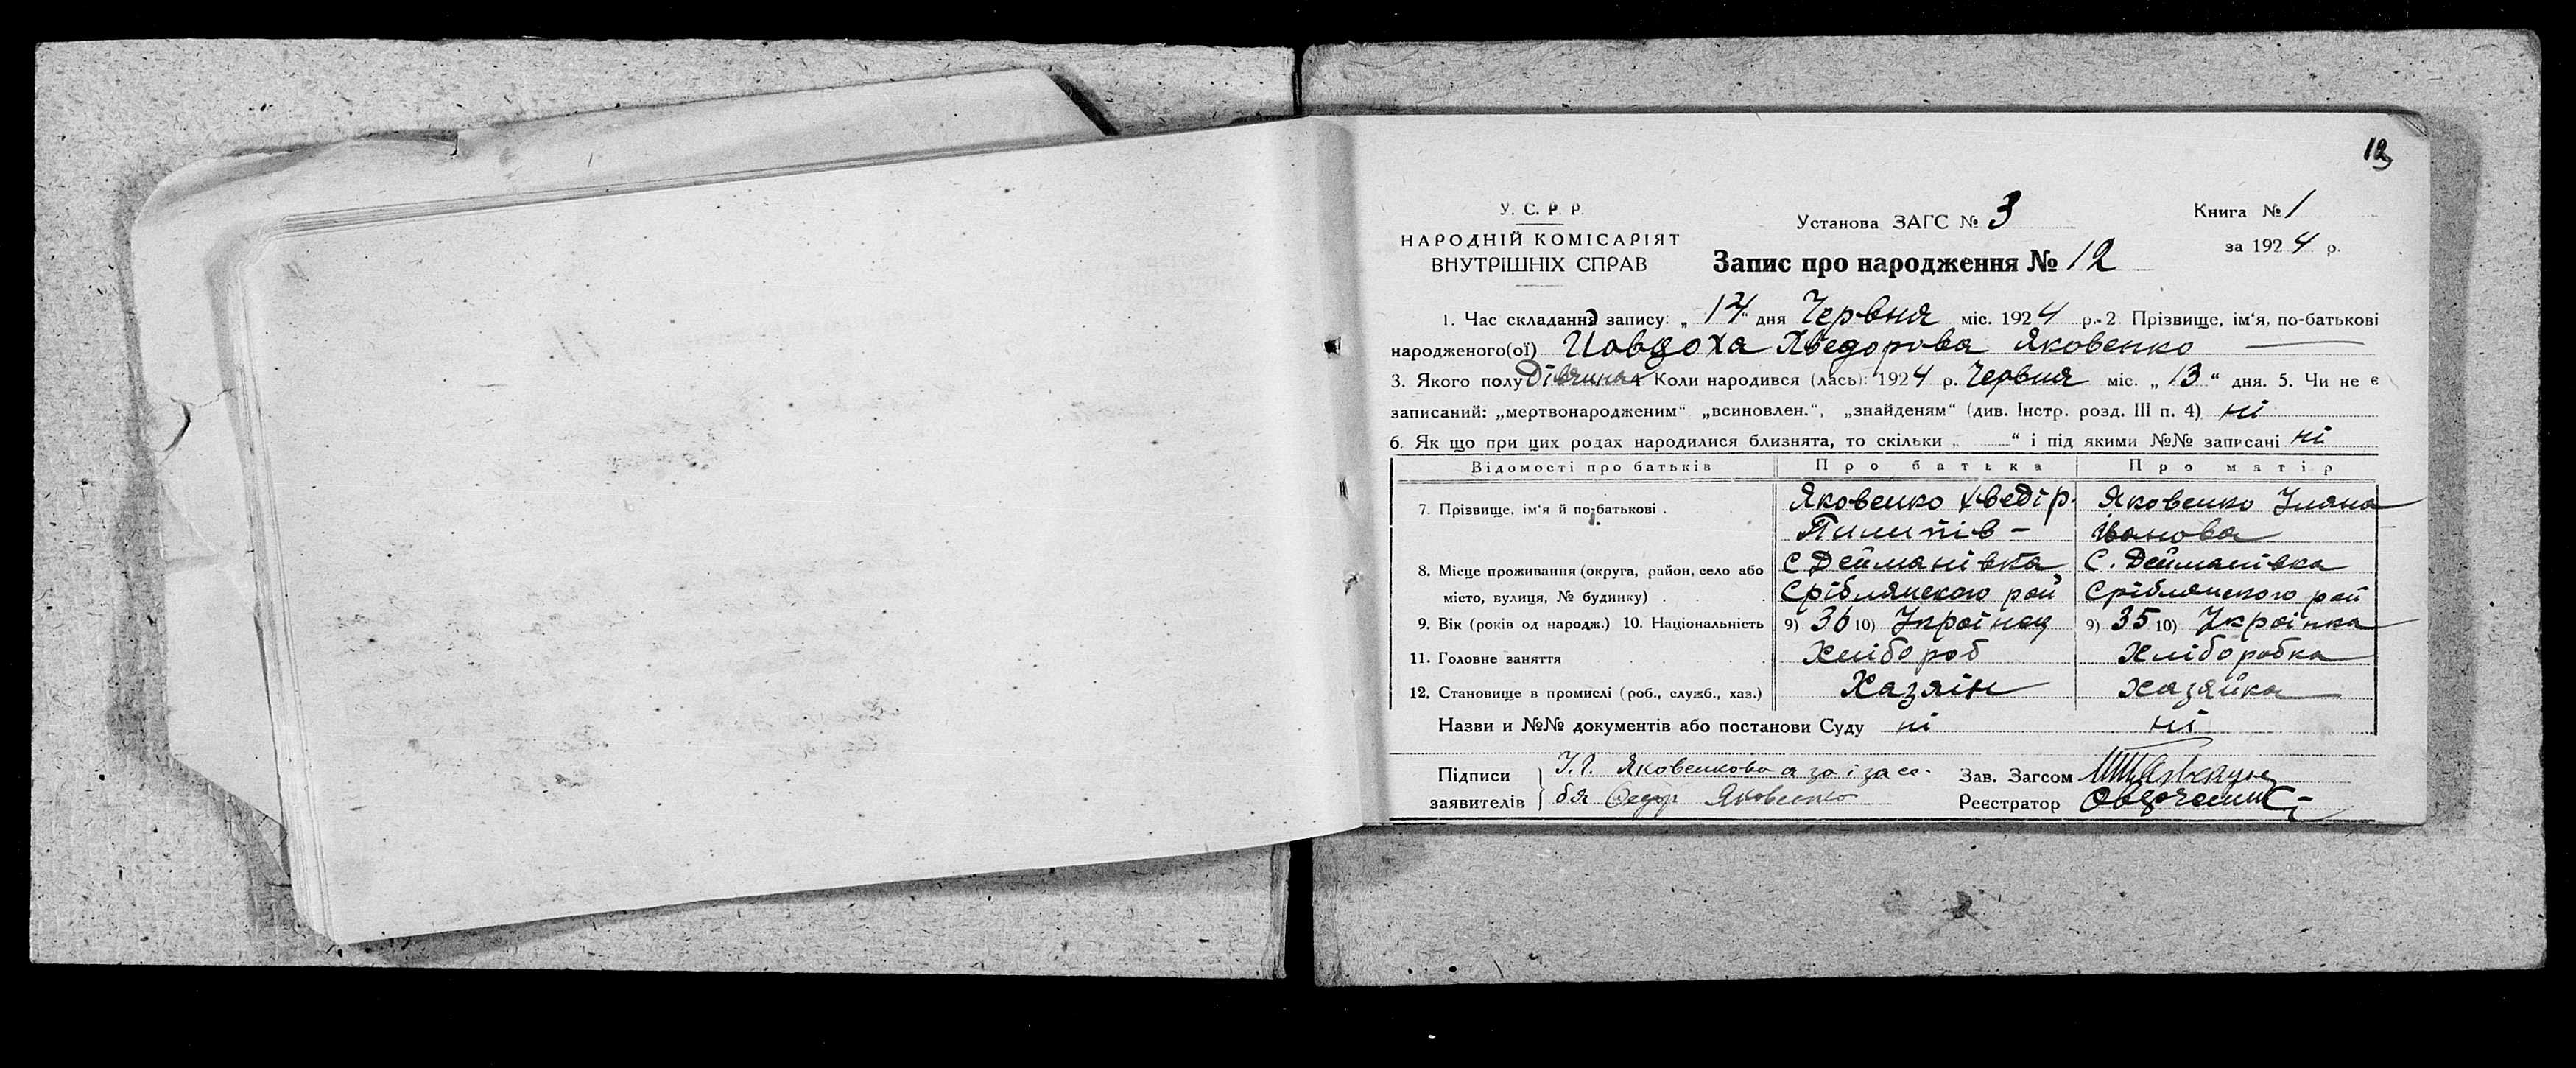 12
У. С. Р. Р.
НАРОДНІЙ КОМІСАРІЯТ
ВНУТРІШНІХ СПРАВ
Установа ЗАГС № 3
Запис про народження № 12
Книга № 1
за 1924 р.
1. Час складання запису: „ 14 " дня Червня міс. 1924 р.- 2 Прізвище, ім'я, по-батькові
народженого(ої) Иовдоха Хведорова Яковенко
3. Якого полу Дівчина 4 Коли народився (лась): 1924 р. Червня міс. „ 13 " дня. 5. Чи не є
записаний: „мертвонародженим" „всиновлен.", „знайденям" (див. Інстр. розд. III п. 4) ні
6. Як що при цих родах народилися близнята, то скільки „ " і під якими №№ записані ні
Відомості про батьків Про батька Про матір
7. Прізвище, ім'я й по-батькові . Яковенко Хведір Яковенко Уляна
Пилипів - Іванова
8. Місце проживання (округа, район, село або с Дейманівка С. Дейманівка
місто, вулиця, № будинку) . . Сріблянского рай Сріблянского рай
9. Вік (років од народж.) 10. Національність 9) 36 10) Українец 9) 35 10) Українка
11. Головне заняття Хлібороб Хліборобка
12. Становище в промислі (роб., служб., хаз.) Хазяін Хазяйка
Назви и №№ документів або постанови Суду ні ні
Підписи Яковенкова а за і за се- Зав. Загсом
заявителів бя Федор Яковенко Реєстратор